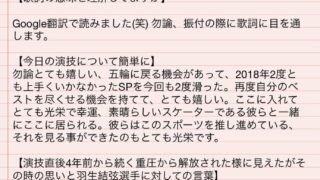 Google翻訳で読みました(笑) 勿論、振付の際に歌詞に目を通します。
【今日の演技について簡単に】
勿論とても嬉しい、五輪に戻る機会があって、2018年2度とも上手くいかなかったSPを今回も2度滑った。再度自分のベストを尽くせる機会を持てて、とても嬉しい。ここに入れてとても光栄で幸運、素晴らしいスケーターである彼らと一緒にここに居られる。彼らはこのスポーツを推し進めている、それを見る事ができたのもとても光栄です。
【演技直後4年前から続く重圧から解放された様に見えたがその時の思いと羽生結弦選手に対しての言葉】